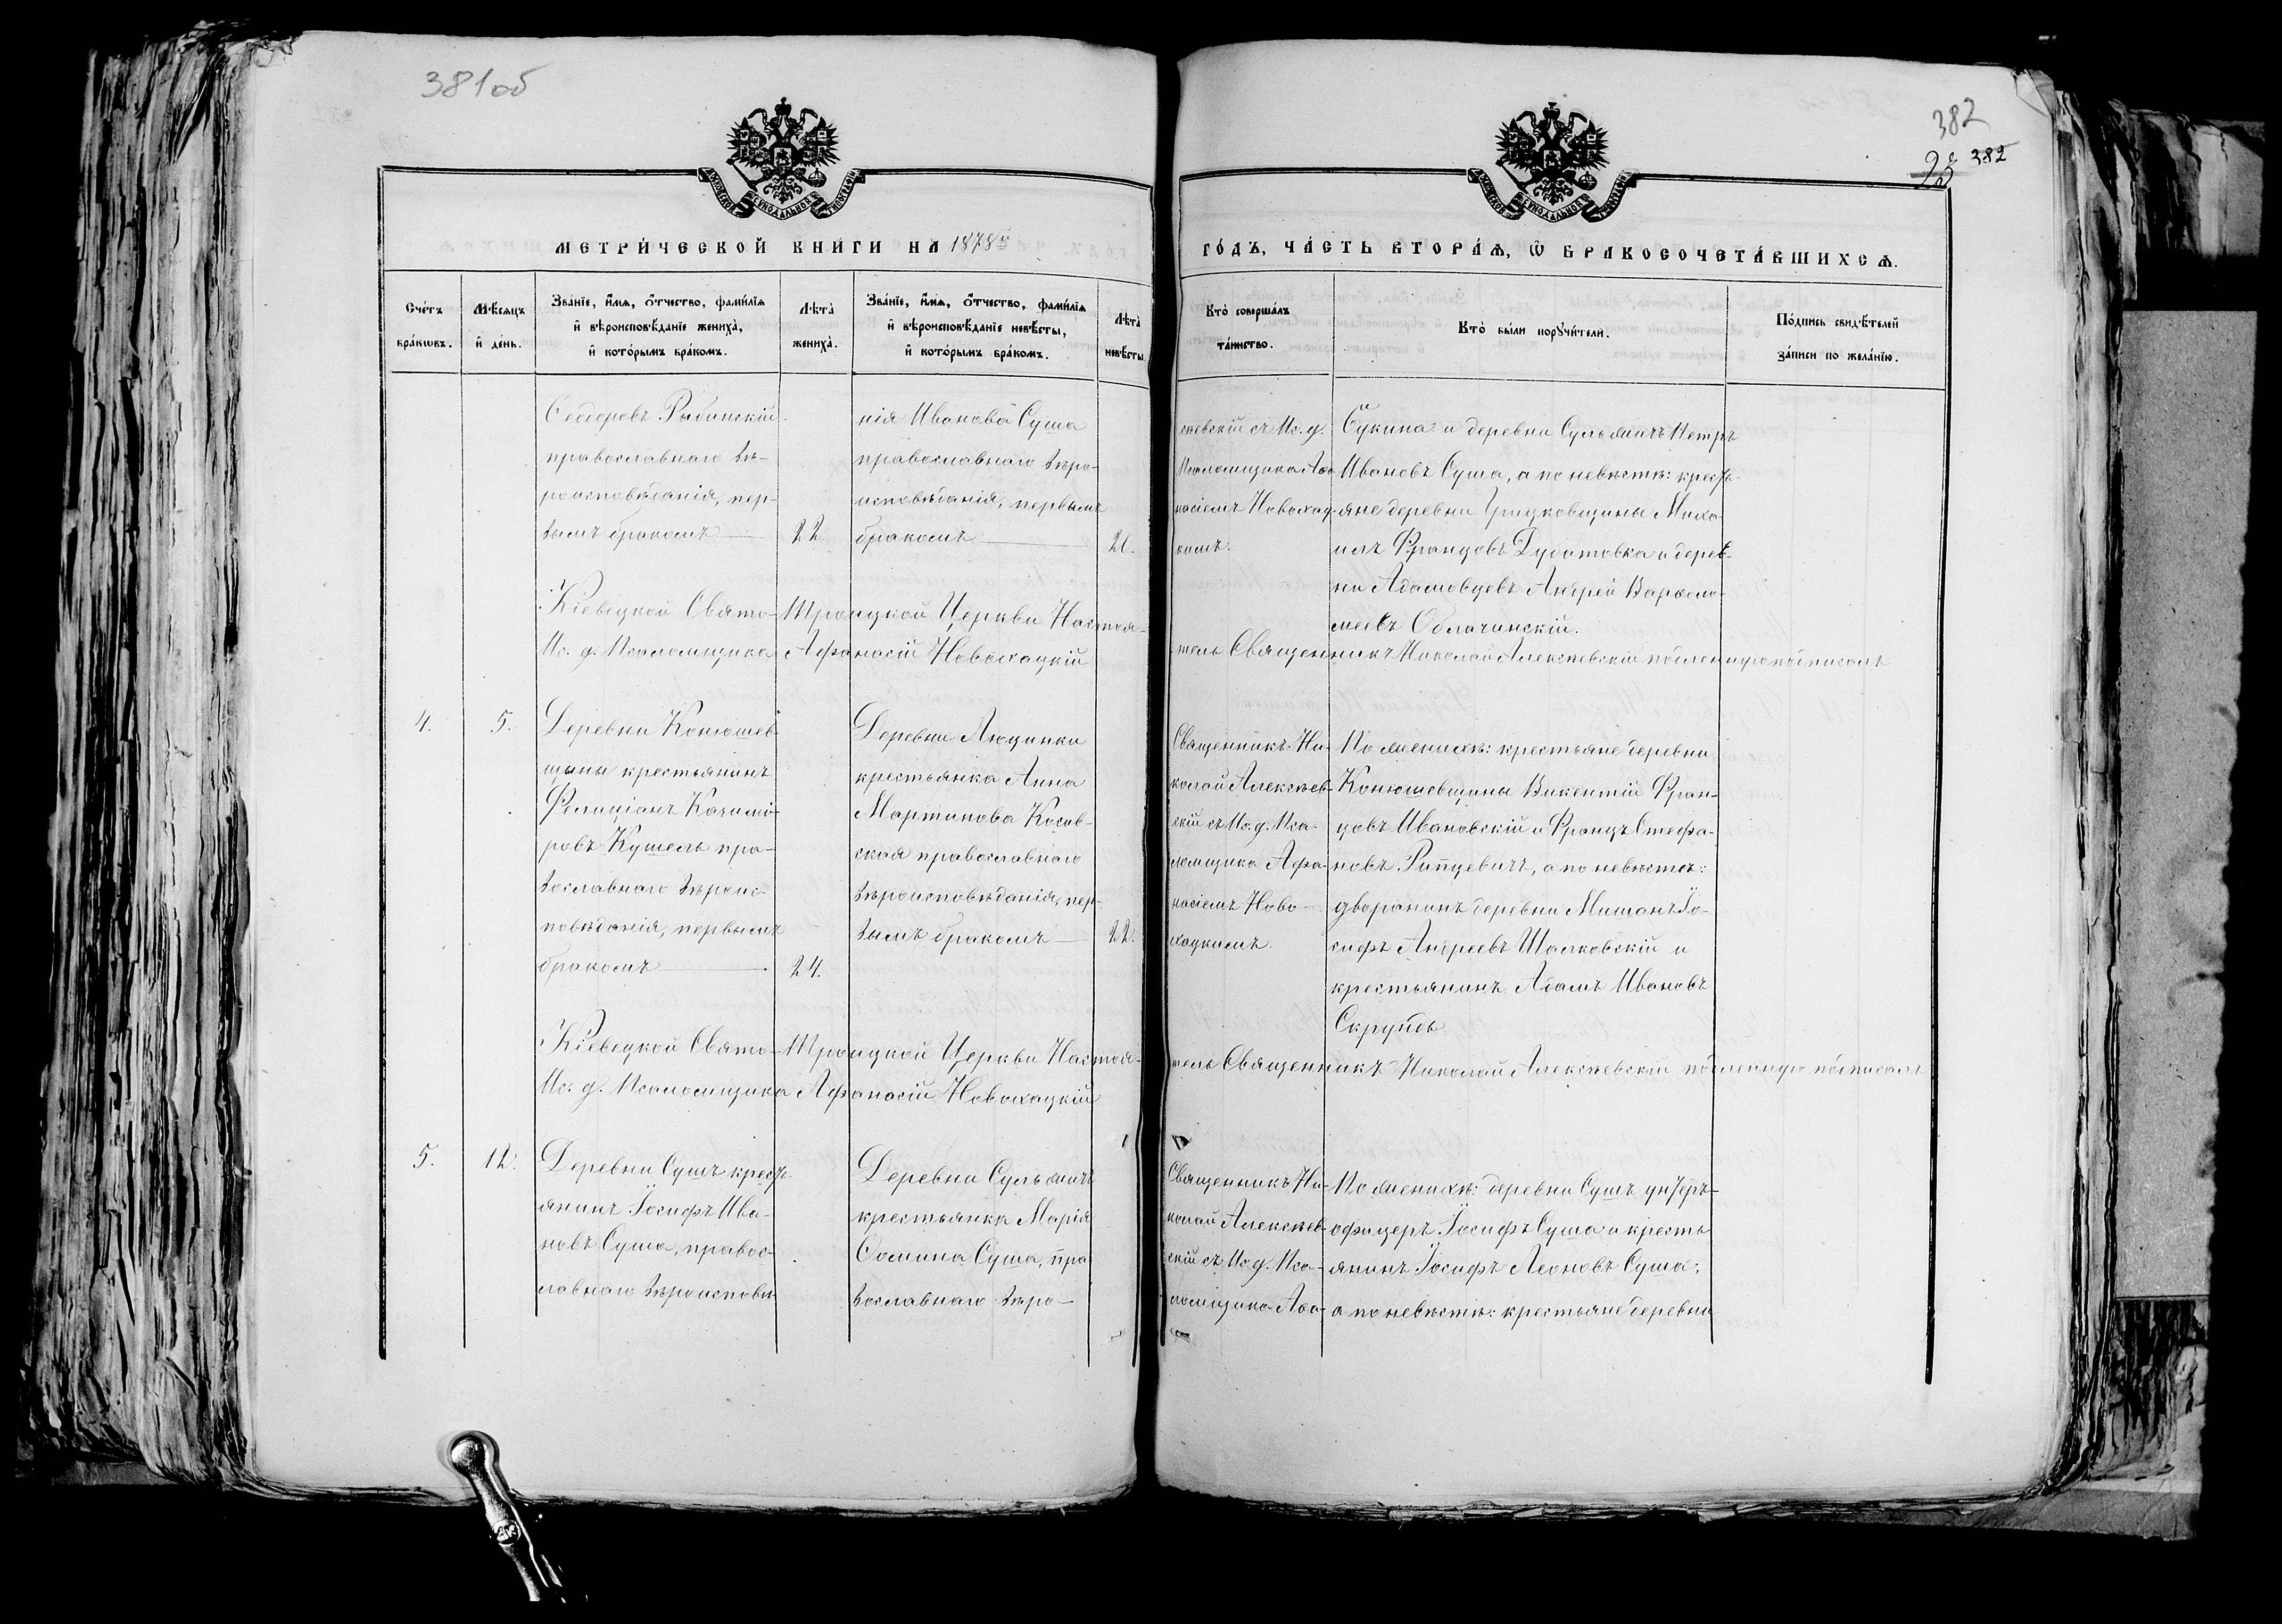 381об
382
382
МЕТРИ́ЧЕСКОЙ КНИ́ГИ НА 1878й
ГО́ДЪ, ЧА́СТЬ ВТОРА́Ѧ, Ѽ БРАКОСОЧЕТА́ВШИХСѦ.
Сче́тъ бра́кѡвъ.
Мѣ́сяцъ и҆ де́нь.
Зва́нїе, и҆́мѧ, ѻ҆́тчество, фами́лїѧ
и҆ вѣроисповѣ́данїе жениха̀,
и҆ кото́рымъ бра́комъ.
Лѣта̀ жениха̀.
Зва́нїе, и҆́мѧ, ѻ҆́тчество, фами́лїѧ
и҆ вѣроисповѣ́данїе невѣ́сты,
и҆ кото́рымъ бра́комъ.
Лѣта̀ невѣ́сты
Кто̀ соверша́лъ та́инство.
Кто̀ бы́ли порꙋчи́тели.
По́дпись свидѣ́телей
за́писи по жела́нїю.
Ѳеодоровъ Рыбинскій
православнаго вѣ-
роисповѣданія, пер-
вымъ бракомъ
22
нія Иванова Суша
православнаго вѣро-
исповѣданія, первымъ
бракомъ
сѣевскій съ Ис. д.
Псаломщика Аѳа-
насіемъ Новохац-
кимъ.
Букина и деревни Сульжичъ Петръ
Ивановъ Суша, а по невѣстѣ: кресть-
яне деревни Грицковщины Миха-
илъ Францовъ Дубатовка и дерев-
ни Адамовцевъ Андрей Варѳоло-
меевъ Облачинскій.
Кіевецкой Свято-Троицкой Церкви Настоя-
тель Священникъ Николай Алексѣевскій подлинную подписалъ
Ис. д. Псаломщика Афанасій Новохацкій
4.
5.
Деревни Конюшев
щины крестьянинъ
Фелиціанъ Казимі-
ровъ Кушель пра-
вославнаго вѣроис-
повѣданія, первымъ
бракомъ
24.
Деревни Люцинки
крестьянка Анна
Мартинова Косов-
ская православнаго
вѣроисповѣданія, пер-
вымъ бракомъ
22.
Священникъ Ни-
колай Алексѣев-
скій съ Ис. д. Пса-
ломщика Афа-
насіемъ Ново-
хацкимъ.
По женихѣ: крестьяне деревни
Конюшевщины Викентій Фран-
цовъ Ивановскій и Францъ Стефа-
новъ Рипцевичъ, а по невѣстѣ:
дворянинъ деревни Мишанъ Іо-
сифъ Андреевъ Шалковскій и
крестьянинъ Адамъ Ивановъ
Скрундь
Кіевецкой Свято-Троицкой Церкви Настоя-
тель Священникъ Николай Алексѣевскій подлинную подписалъ
Ис. д. Псаломщика Афанасій Новохацкій
5.
12.
Деревни Сушъ кресть-
янинъ Іосифъ Ива-
новъ Суша, правос-
лавнаго вѣроисповѣ-
Деревни Сульжичъ
крестьянка Марія
Ѳомина Суша, пра-
вославнаго вѣро-
Священникъ Ни-
колай Алексѣев-
скій съ Ис. д. Пса-
ломщика Аѳа-
По женихѣ: деревни Сушъ унтеръ-
офицеръ Іосифъ Суша и кресть
янинъ Іосифъ Леоновъ Суша;
а по невѣстѣ: крестьяне деревни